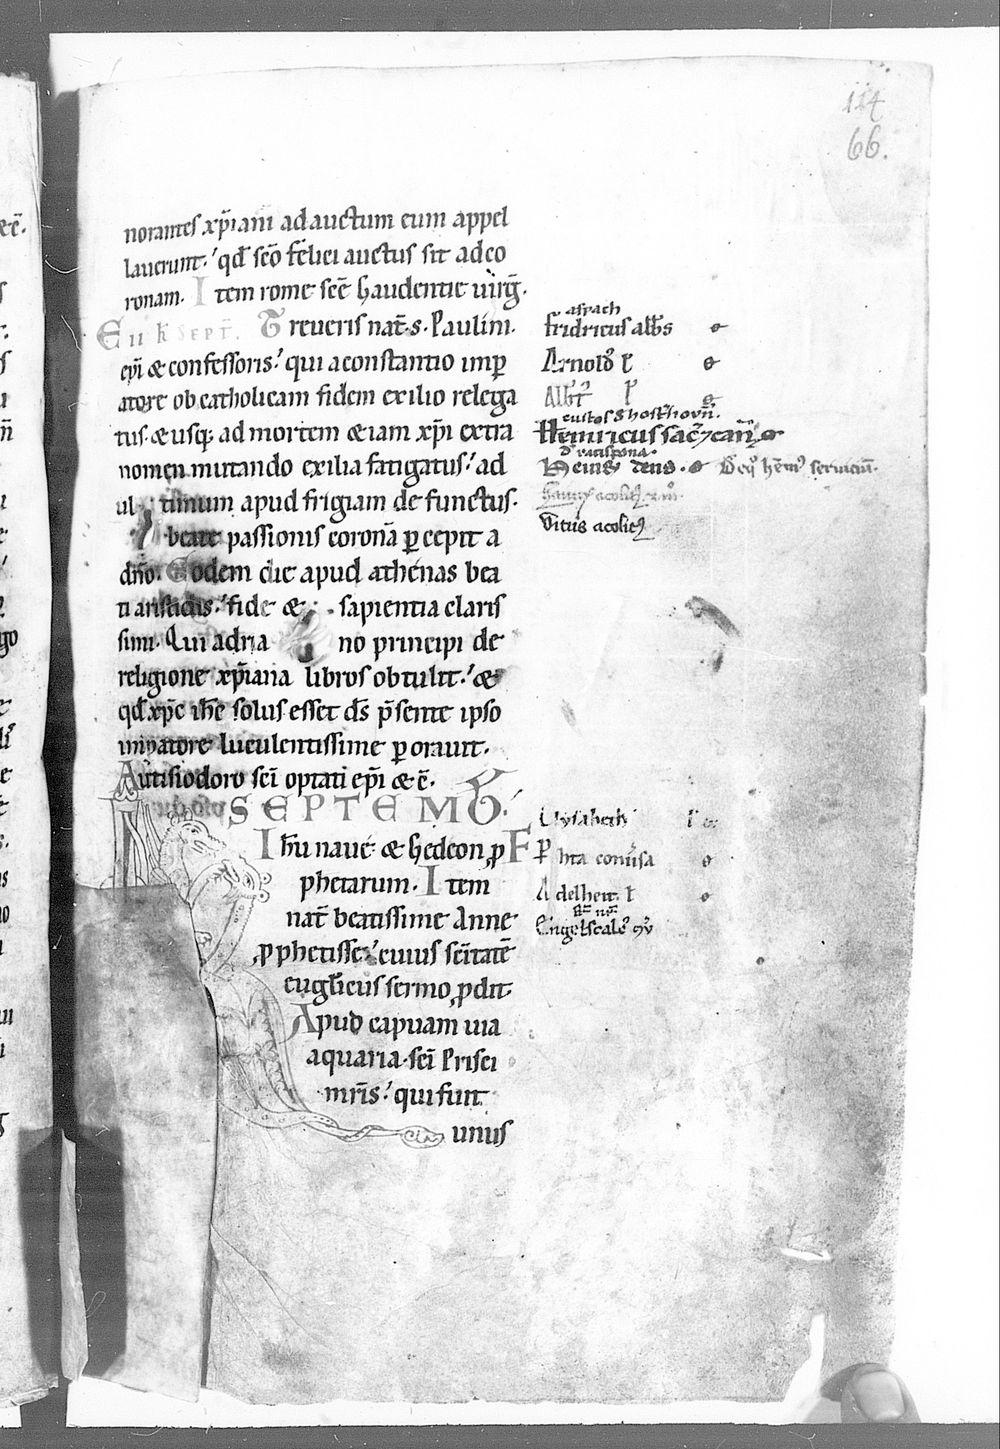 114
66.
norantes xp̃iani adauctum eum appel
lauerunt. qđ sc̃o felici auctus sit adeo
ronam. Item rome sc̃e Gaudentie uirg̃.
E II k̃ SEPT̃. Treueris nat̃ s. Paulini.
ep̃i & confessoris. qui aconstantio imp̃
atore ob catholicam fidem exilio relega
tus. & usq; ad mortem & iam xp̃i extra
nomen mutando exilia fatigatus. ad
ul timum apud frigiam de functus.
beate passionis coronã p cepit a
dño. Eodem die apud athenas bea
ti aristidis. fide & sapientia claris
simi. Qui adria no principi de
religione xp̃iana libros obtulit. &
qđ xp̃c ih̃c solus esset d̃s p̃sente ipso
impatore luculentissime p orauit.
Autisiodoro sc̃i optati ep̃i & c̃.
SEPTEMB.
Ih̃u naue. & Gedeon, p F
phetarum. Item
nat̃ beatissime Anne
pphetisse. cuius sc̃itatẽ
euglicus sermo pdit
Apud capuam uia
aquaria. sc̃i Prisci
mr̃is. qui fuit
unus
aspach
fridricus albs
Arnold' l
Alb't'
custos
Heinricus sac'
Heinr' 
Vitus acolit'
Elysabeth
hta conu'sa
Adelheit l
Engelscalc'